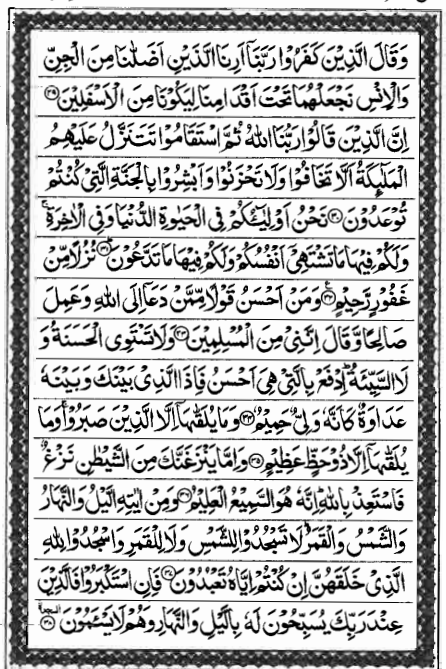 وَقَالَ الَّذِيْنَ كَفَرُوْا رَبَّنَاۤ اَرِنَا الَّذَيْنِ اَضَلّٰنَا مِنَ الْجِنِّ
وَالْاِنْسِ نَجْعَلْهُمَا تَحْتَ اَقْدَامِنَا لِيَكُوْنَا مِنَ الْاَسْفَلِيْنَ ﴿۲۹﴾
اِنَّ الَّذِيْنَ قَالُوْا رَبُّنَا اللّٰهُ ثُمَّ اسْتَقَامُوْا تَتَنَزَّلُ عَلَيْهِمُ
الْمَلٰٓئِكَةُ اَلَّا تَخَافُوْا وَلَا تَحْزَنُوْا وَاَبْشِرُوْا بِالْجَنَّةِ الَّتِيْ كُنْتُمْ
تُوْعَدُوْنَ ﴿۳۰﴾ نَحْنُ اَوْلِيٰٓـؤُكُمْ فِي الْحَيٰوةِ الدُّنْيَا وَفِي الْاٰخِرَةِ ۚ
وَلَكُمْ فِيْهَا مَا تَشْتَهِيْۤ اَنْفُسُكُمْ وَلَكُمْ فِيْهَا مَا تَدَّعُوْنَ ﴿۳۱﴾ نُزُلًا مِّنْ
غَفُوْرٍ رَّحِيْمٍ ﴿۳۲﴾ وَمَنْ اَحْسَنُ قَوْلًا مِّمَّنْ دَعَاۤ اِلَى اللّٰهِ وَعَمِلَ
صَالِحًا وَّقَالَ اِنَّنِيْ مِنَ الْمُسْلِمِيْنَ ﴿۳۳﴾ وَلَا تَسْتَوِي الْحَسَنَةُ وَ
لَا السَّيِّئَةُ ؕ اِدْفَعْ بِالَّتِيْ هِيَ اَحْسَنُ فَاِذَا الَّذِيْ بَيْنَكَ وَبَيْنَهٗ
عَدَاوَةٌ كَاَنَّهٗ وَلِيٌّ حَمِيْمٌ ﴿۳۴﴾ وَمَا يُلَقّٰىهَاۤ اِلَّا الَّذِيْنَ صَبَرُوْا ۚ وَمَا
يُلَقّٰىهَاۤ اِلَّا ذُوْ حَظٍّ عَظِيْمٍ ﴿۳۵﴾ وَاِمَّا يَنْزَغَنَّكَ مِنَ الشَّيْطٰنِ نَزْغٌ
فَاسْتَعِذْ بِاللّٰهِ ؕ اِنَّهٗ هُوَ السَّمِيْعُ الْعَلِيْمُ ﴿۳۶﴾ وَمِنْ اٰيٰتِهِ الَّيْلُ وَالنَّهَارُ
وَالشَّمْسُ وَالْقَمَرُ ؕ لَا تَسْجُدُوْا لِلشَّمْسِ وَلَا لِلْقَمَرِ وَاسْجُدُوْا لِلّٰهِ
الَّذِيْ خَلَقَهُنَّ اِنْ كُنْتُمْ اِيَّاهُ تَعْبُدُوْنَ ﴿۳۷﴾ فَاِنِ اسْتَكْبَرُوْا فَالَّذِيْنَ
عِنْدَ رَبِّكَ يُسَبِّحُوْنَ لَهٗ بِالَّيْلِ وَالنَّهَارِ وَهُمْ لَا يَسْـَٔمُوْنَ ۩ ﴿۳۸﴾